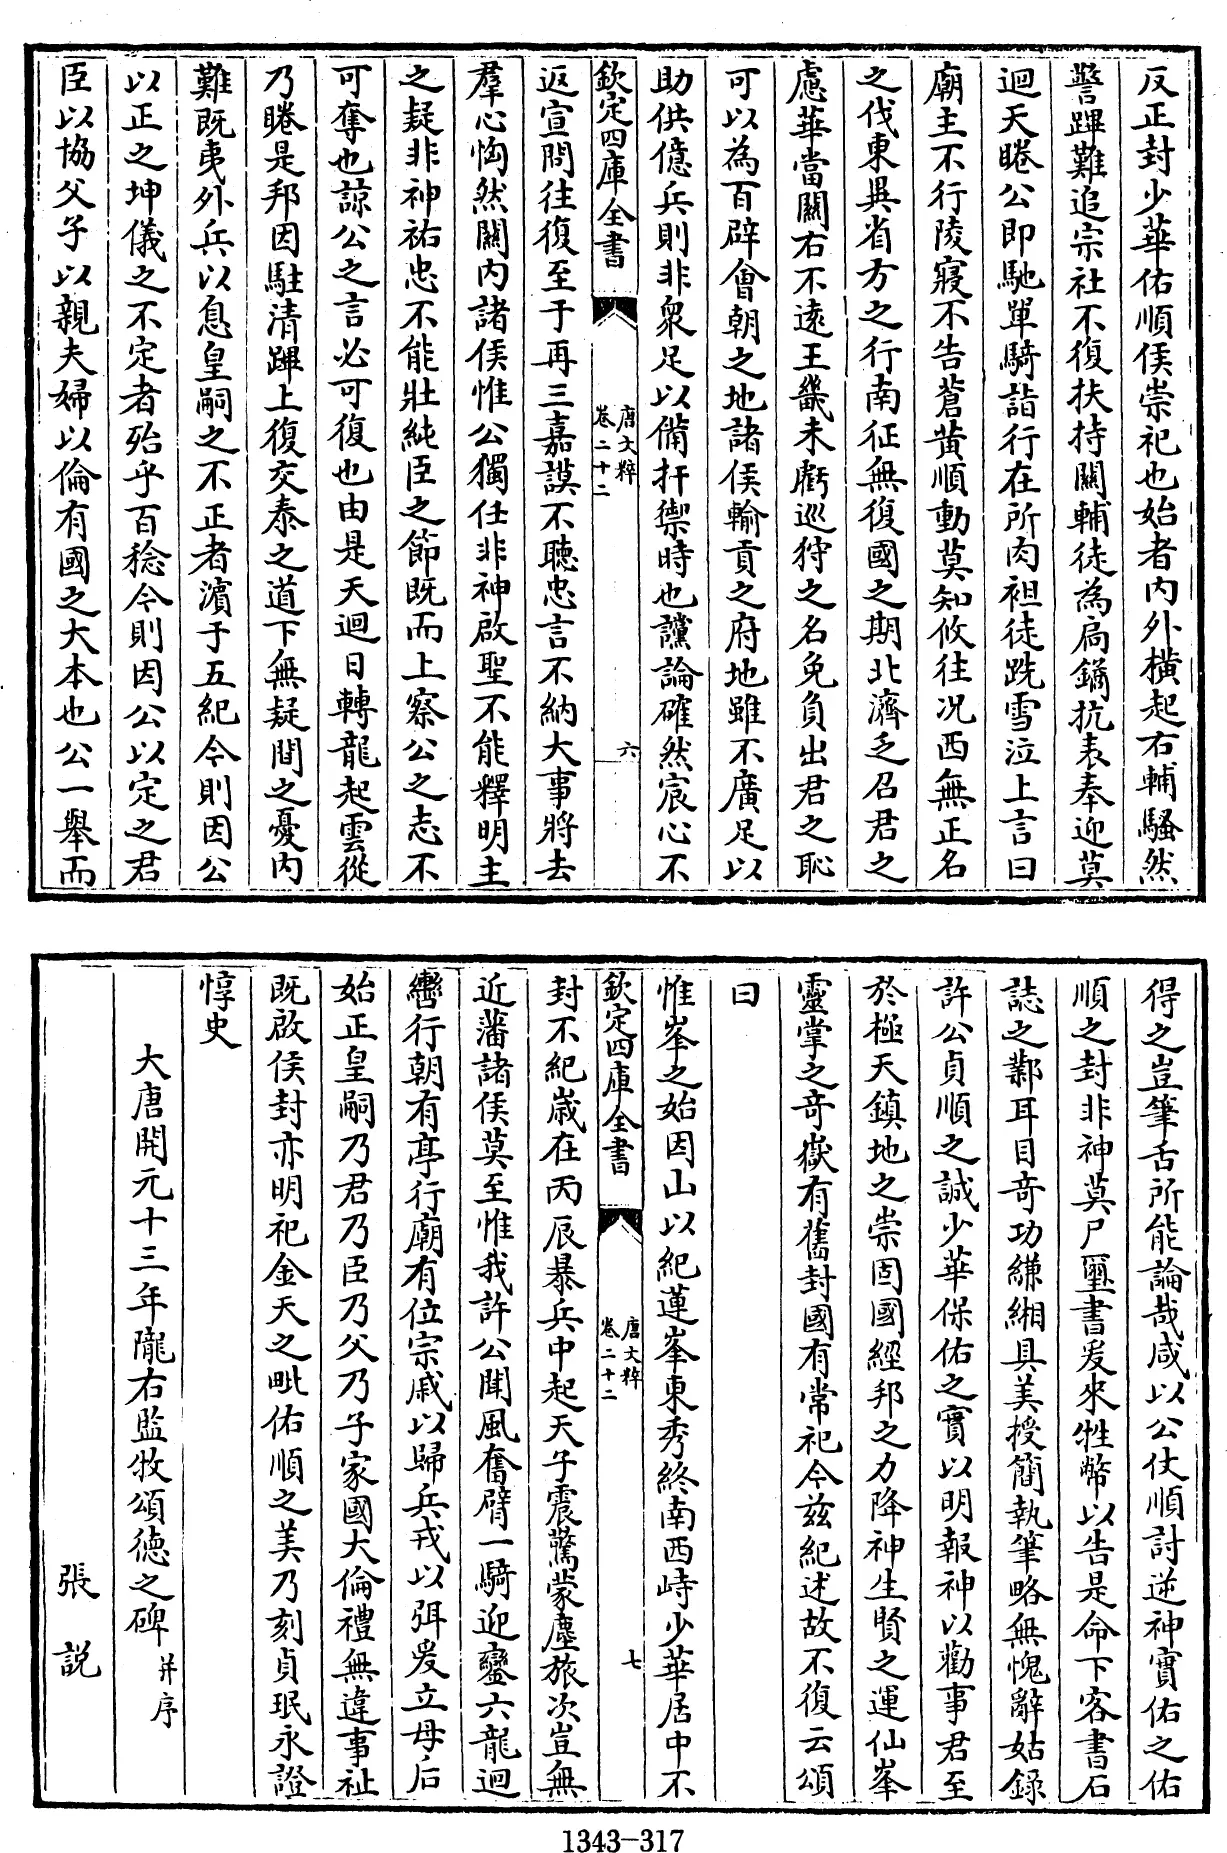 反正封少華佑順侯崇祀也始者内外橫起右輔騷然
警蹕難追宗社不復扶持關輔徒為扃鐍抗表奉迎莫
迴天睠公即馳單騎詣行在所肉袒徒跣雪泣上言曰
廟主不行陵寢不告蒼黃順動莫知攸往况西無正名
之伐東異省方之行南征無復國之期北濟乏召君之
慮華當關右不遠王畿未虧巡狩之名免負出君之恥
可以為百辟會朝之地諸侯輸貢之府地雖不廣足以
助供億兵則非衆足以備扞禦時也讜論確然宸心不
欽定四庫全書
唐文粹
卷二十二
六
返宣問往復至于再三嘉謨不聽忠言不納大事將去
羣心恟然關内諸侯惟公獨任非神啟聖不能釋明主
之疑非神祐忠不能壯純臣之節既而上察公之志不
可奪也諒公之言必可復也由是天迴日轉龍起雲從
乃睠是邦因駐清蹕上復交泰之道下無疑間之憂内
難既夷外兵以息皇嗣之不正者濵于五紀今則因公
以正之坤儀之不定者殆乎百稔今則因公以定之君
臣以協父子以親夫婦以倫有國之大本也公一舉而
得之豈筆舌所能論哉咸以公仗順討逆神實佑之佑
順之封非神莫尸璽書爰來牲幣以告是命下客書石
誌之鄴耳目竒功縑緗具美授簡執筆略無愧辭姑錄
許公貞順之誠少華保佑之實以明報神以勸事君至
於極天鎮地之崇固國經邦之力降神生賢之運仙峯
靈掌之竒嶽有舊封國有常祀今兹紀述故不復云頌
曰
惟峯之始因山以紀蓮峯東秀終南西峙少華居中不
欽定四庫全書
唐文粹
卷二十二
七
封不紀嵗在丙辰暴兵中起天子震驚蒙塵旅次豈無
近藩諸侯莫至惟我許公聞風奮臂一騎迎鑾六龍迴
轡行朝有亭行廟有位宗戚以歸兵戎以弭爰立母后
始正皇嗣乃君乃臣乃父乃子家國大倫禮無違事祉
既啟侯封亦明祀金天之毗佑順之美乃刻貞珉永證
惇史
大唐開元十三年隴右監牧頌德之碑 并序
張説
1343-317